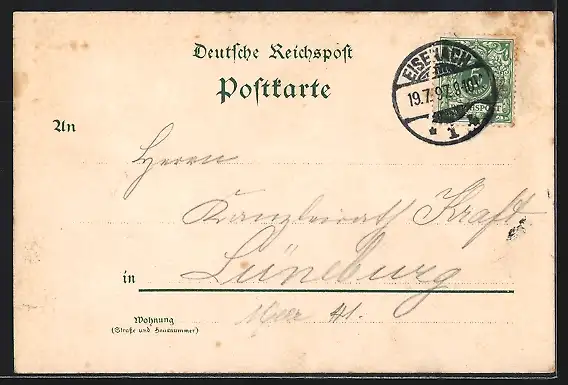 Deutsche Reichspost
Postkarte
EISENACH
19.7.97.
* 1 *
REICHSPOST
An
Herrn
Kanzleirath Kraft
in Lüneburg
Wohnung
(Straße und Hausnummer)
Meer 41.